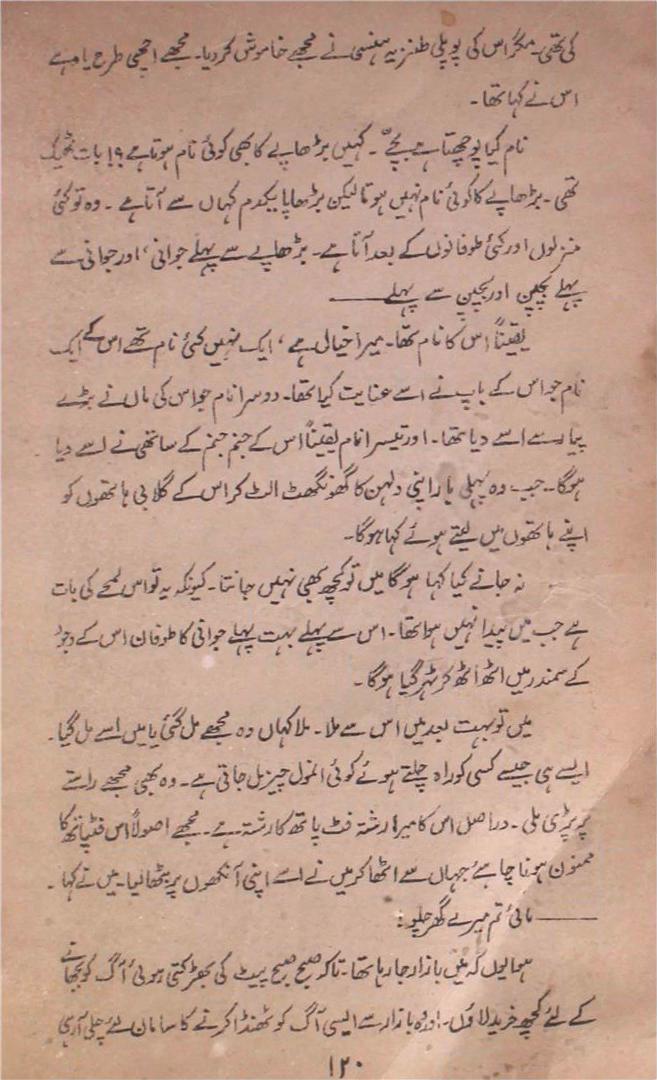 کی تھی۔ مگر اس کی پوپلی طنزیہ ہنسی نے مجھے خاموش کر دیا۔ مجھے اچھی طرح یاد ہے
اس نے کہا تھا۔
نام کیا پوچھتا ہے بچے"۔ کہیں بڑھاپے کا بھی کوئی نام ہوتا ہے؟! بات ٹھیک
تھی۔ بڑھاپے کا کوئی نام نہیں ہوتا لیکن بڑھاپا یکدم کہاں سے آتا ہے۔ وہ تو کئی
منزلوں اور کئی طوفانوں کے بعد آتا ہے۔ بڑھاپے سے پہلے جوانی، اور جوانی سے
پہلے بچپن اور بچپن سے پہلے ——
یقیناً اس کا نام تھا۔ میرا خیال ہے، ایک نہیں کئی نام تھے اس کے ایک
نام جو اس کے باپ نے اسے عنایت کیا تھا۔ دوسرا نام جو اس کی ماں نے بڑے
پیار سے اسے دیا تھا۔ اور تیسرا نام یقیناً اس کے جنم جنم کے ساتھی نے اسے دیا
ہوگا۔ جب وہ پہلی بار اپنی دلہن کا گھونگھٹ الٹ کر اس کے گلابی ہاتھوں کو
اپنے ہاتھوں میں لیتے ہوئے کہا ہوگا۔
نہ جانے کیا کہا ہوگا میں تو کچھ بھی نہیں جانتا۔ کیونکہ یہ تو اس لمحے کی بات
ہے جب میں پیدا نہیں ہوا تھا۔ اس سے پہلے بہت پہلے جوانی کا طوفان اس کے وجود
کے سمندر میں اٹھ اٹھ کر ٹھہر گیا ہوگا۔
میں تو بہت بعد میں اس سے ملا۔ ملا کہاں وہ مجھے مل گئی یا میں اسے مل گیا۔
ایسے ہی جیسے کسی کو راہ چلتے ہوئے کوئی انمول چیز مل جاتی ہے۔ وہ بھی مجھے راستے
پر پڑی ملی۔ دراصل اس کا میرا رشتہ فٹ پاتھ کا رشتہ ہے۔ مجھے اصولاً اس فٹپاتھ کا
ممنون ہونا چاہئے جہاں سے اٹھا کر میں نے اسے اپنی آنکھوں پر بٹھا لیا۔ میں نے کہا۔
—— مائی تم میرے گھر چلو:
ہوا یوں کہ میں بازار جا رہا تھا۔ تاکہ صبح صبح پیٹ کی بھڑکتی ہوئی آگ کو بجھانے
کے لئے کچھ خرید لاؤں۔ اور وہ بازار سے ایسی آگ کو ٹھنڈا کرنے کا سامان لئے چلی آ رہی
۱۲۰